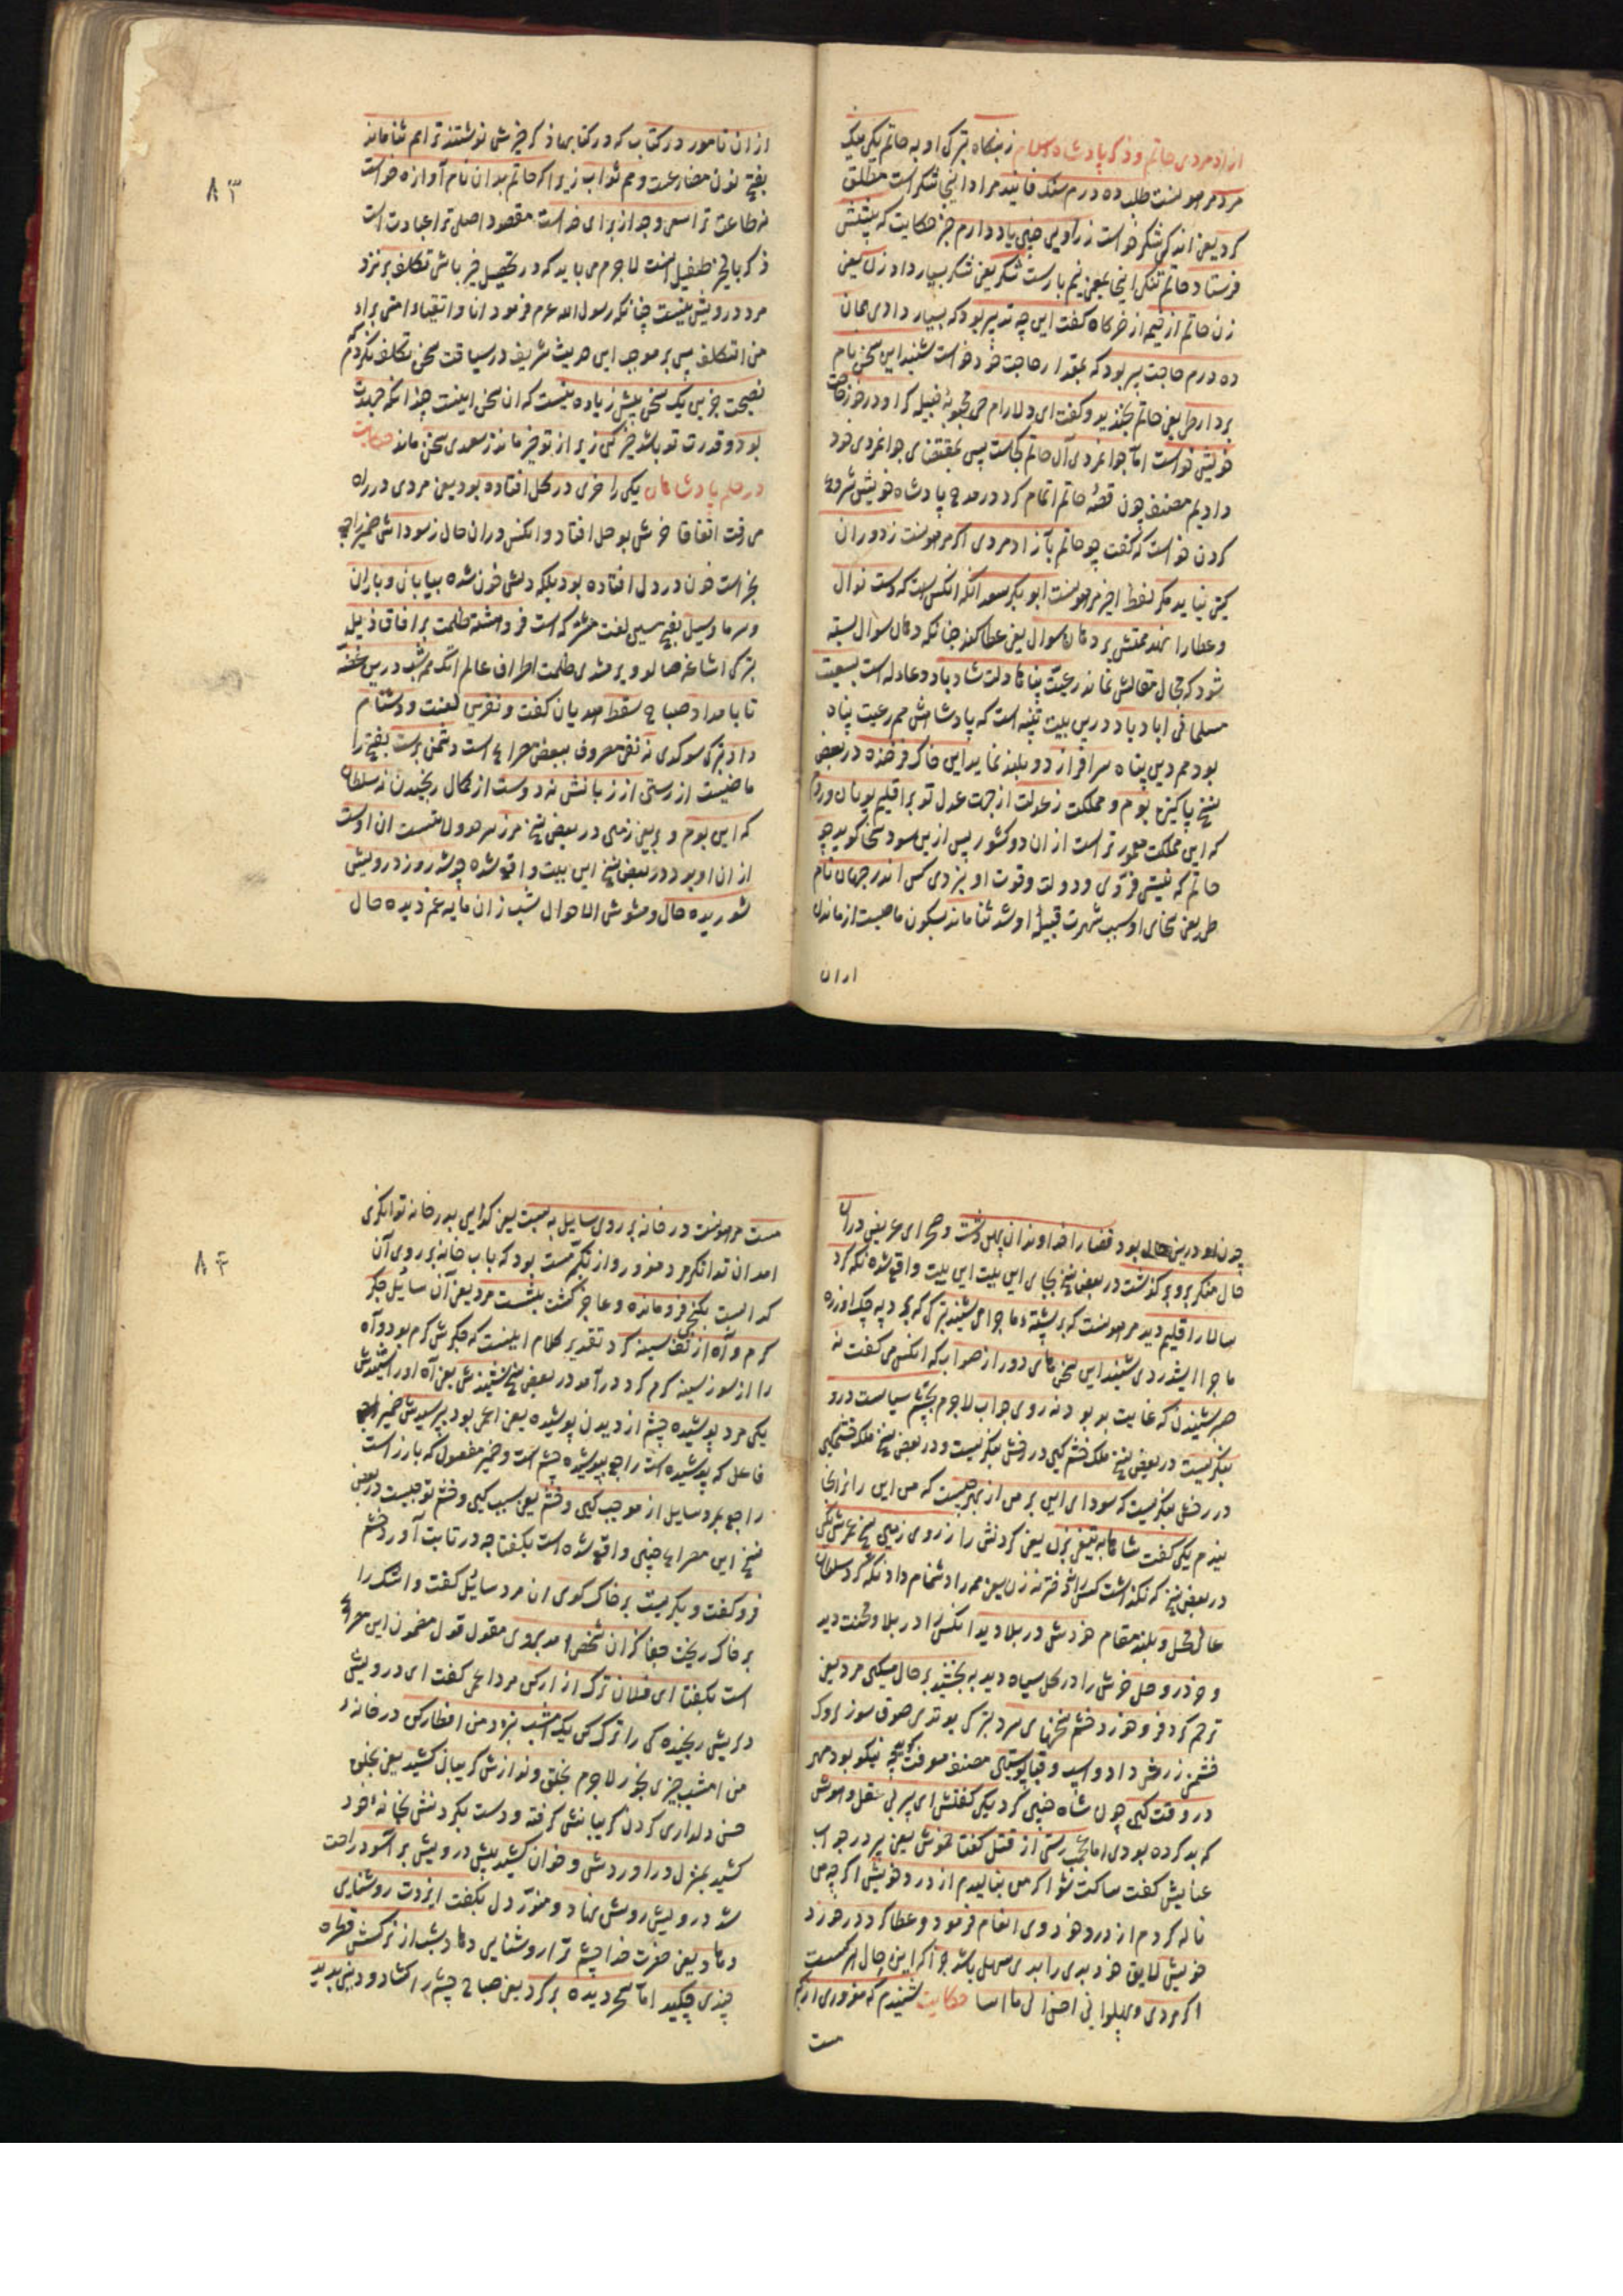 ازاد مردی حاتم و ذکر پادشاه اسلام ز بنکاه بترکی او به حاتم یکی پیک
مرد مرهونست طلب ده درم سنک فانید مراد اینجا شکر است مطلق
کرد یعنی اندکی شکر خواست ز راوی چنین یاد دارم خبر حکایت که پیشش
فرستاد حاتم تنکی اینجا بمعنی نیم بارست شکر یعنی شکر بسیار داد زن یعنی
زن حاتم از خیمه از خرکاه کفت این چه تدبیر بود که بسیار دادی همان
ده درم حاجت پیر بود که بمقدار حاجت خود خواست شنید این سخن نام
بردار طی یعنی حاتم بخندید و کفت ای دلارام حی محبوبهٔ قبیله کر او در خور حاجت
خویش خواست اما جوانمردی آل حاتم کجاست پس بمقتضای جوانمردی خود
دادیم مصنف چون قصهٔ حاتم اتمام کرد در مدح پادشاه خویش شروع
کردن خواست که کفت چو حاتم بآزاد مردی اکر مرهونست ز دوران
کیتی نیاید مکر لفظ اخیر مرهونست ابو بکر سعد آنکه انکس است که دست نوال
و عطا را نهد همتش بر دهان سوال یعنی عطا کند چنانکه دهان سوال بسته
شود که مجال مقالش نماند رعیت پناها دلت شاد باد و عادل است بسعیت
مسلمانی اباد باد درین بیت تنبیه است که پادشاهش هم رعیت پناه
بود هم دین پناه سرافرازد و بلند نماید این خاک فرخنده در بعض
نسخ پاکیزه بوم و مملکت ز عدلت از جهت عدل تو بر اقلیم یونان و روم
که این مملکت معمور تر است از ان دو کشور پس ازین سو دسخا کوید چو
حاتم که نیستی فرّوی و دولت و قوت او نبردی کس اندر جهان نام
طی یعنی سخای او سبب شهرت قبیلهٔ او شد ثنا ماند بسکون ماضیست از ماندن
ازان
از ان نامور در کتاب که در کتابها ذکر خیرش نوشتند ترا هم ثنا ماند
بفتح نون مضارعست و هم ثواب زیرا که حاتم بدان نام آوازه خواست
نه طاعت ترا سعی و جد از برای خداست مقصود اصلی ترا عبادت است
ذکر بالخیر طفیل اینست لاجرم می باید که در تحصیل خیر باشی تکلف بر نزد
مرد درویش نیست چنانکه رسول الله عم فرمود انا و اتقیاء امتی براء
من التکلف پس بر موجب این حدیث شریف در سیاقت سخن تکلف نکردم
نصیحت جزین یک سخن بیش زیاده نیست که ان سخن اینست چندانکه جهدت
بود و قدرت تو باشد خیر کن زیرا از تو خیر ماند ز سعدی سخن ماند حکایت
در حلم پادشاهان یکی را خری در کل افتاده بود یعنی مردی در راه
می رفت اتفاقا خرش بوحل افتاد و انکس دران حال ز سوداش ضمیر راجع
بخر است خون در دل افتاده بود بلکه دلش خون شده بیابانی و باران
و سرما و سیل بفتح سین لغت مشترکه است فرو هشته ظلمت بر افاق ذیل
بترکی اشاغه صالو ویرمشدی ظلمت اطراف عالم اتک همه شب درین غصه
تا بامداد صباح سقط هدیان کفت و نفرین لعنت و دشنام
داد بترکی سوکدی نه نفی مصروف ببعض مصراع است دشمن برست بفتح را
ماضیست از رستن از زبانش نه دوست از کمال رنجیدن نه سلطان
که این بوم و بر یعنی زمین و در بعض نسخ مرز مرهدولا نیست ان اوست
از ان او بود و در بعض نسخ این بیت واقع شده چو شد روز درویش
شوریده حال و مشوش الاحوال شب زان مایه غم دیده حال
چون او درین حال بود قضا را خداوند ان پهن دشت و صحرای عریض دران
حال منکر برو بر کذشت در بعض نسخ بجای این بیت این بیت واقع شده نکه کرد
سالار اقلیم دید مرهونست که بر پشته ماجرا می شنید بترکی که بر دپه چک اورزه
ماجرا ایشدردی شنید این سخن های دور از صواب که انکس می کفت نه
صبر شنیدن که غایت بد بود نه روی جواب لاجرم بچشم سیاست درو
بنکریست در بعض نسخ ملک خشم کین در رخش بنکریست و در بعض نسخ ملک خشمکین
در رخش بنکریست که سودای این بر من از بهر چیست که من این را نرانجا
نیدم یکی کفت شاها به تیغش بزن یعنی کردنش را ز روی زمین بیخ عمرش بکن
در بعض نسخ که نکذاشت کس را نه دختر نه زن یعنی همه را دشنام داد نکه کرد سلطان
عالی محل و بلند مقام خودش در بلا دید انکس را در بلا و محنت دید
و خر در وحل خرش را در کل سیاه دید به بخشید بر حال مسکین مرد یعنی
ترحم کرد فرو خورد خشم سخنهای سرد بترکی یوتدی صوق سوزلروک
خشمن زرش داد و اسپ و قبا پوستین مصنف معرفت کفت چه نیکو بود مهر
در وقت کین چون شاه چنین کرد یکی کفتش ای پیر بی عقل و هوش
که بد کرده بودی اما عجب رستی از قتل کفتا خموش یعنی پیر در جواب
عنایش کفت ساکت شو اکر من بنالیدم از درد خویش اکرچه من
ناله کردم از درد خود وی انعام فرمود و عطا کرد در خورد
خویش لایق خود بدی را بدی سهل باشد جزا که این حال اکثریست
اکر مردی و پهلوانی احسن الی من اسا حکایت شنیدم که مغروری از کبر
مست
مست مرهونست در خانه بر روی سایل به بست یعنی کدایی بدر خانه توانکری
امد ان توانکر مرد مغرور و از تکبر مست بود که باب خانه بر روی آن
کدا بست بکنجی فرو مانده و عاجز کشت بنشست مرد یعنی آن سائل جکر
کرم و آه از تف سینه کرد تقدیر کلام اینست که جکرش کرم بود و آه
را از سوز سینه کرم کرد در آمد در بعض نسخ شنیدش یعنی آه او را شنیدش
یکی مرد پوشیده چشم از دیدن پوشیده یعنی اعمی بود بپرسیدش ضمیر راجع
فاعل که پرشیده است راجع بپوشیده چشم است و ضمیر مفعول که بارز است
راجع بمرد سایل از موجب کین و خشم یعنی سبب کین و خشم تو چیست در بعض
نسخ این مصراع چنین واقع شده است بکفتا چه در تابت آورد خشم
فرو کفت و بکریست بر خاک کوی ان مرد سائل کفت و اشک را
بر خاک ریخت جفا کز ان شخص آمد بروی مقول قول مضمون این مصراع
است بکفتا ای فلان ترک ازار کن مرد اعمی کفت ای درویش
دلریش رنجیده کی را ترک کن یک امشب بنزد من افطار کن در خانهٔ
من امشب چیزی بخور لاجرم بخلق و نوازش کریبان کشید یعنی بخلق
حسن دلداری کردن کریبانش کرفته و دست بکردنش بخانهٔ خود
کشید بمنزل در اوردش و خوان کشید پیش درویش بر آسود راحت
شد درویش روشن نهاد و منوّر دل بکفت ایزدت روشنایی
دهاد یعنی حضرت خدا چشم ترا روشنایی دهاد شب از نرکسش قطره
چندی چکید اما سحر دیده بر کرد یعنی صباح چشم را کشاد و دنیی بدید
۸۳
۸۴